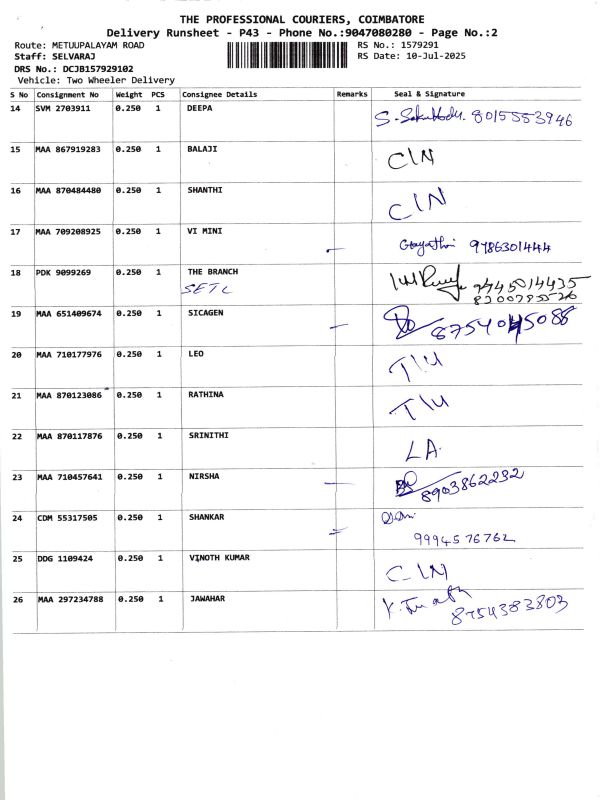 THE PROFESSIONAL COURIERS, COIMBATORE
Delivery Runsheet - P43 - Phone No.:9047080280 - Page No.:2
Route: METUUPALAYAM ROAD RS No.: 1579291
Staff: SELVARAJ RS Date: 10-Jul-2025
DRS No.: DCJB157929102
Vehicle: Two Wheeler Delivery
S No Consignment No Weight PCS Consignee Details Remarks Seal & Signature
14 SVM 2703911 0.250 1 DEEPA 8015553946
15 MAA 867919283 0.250 1 BALAJI C/N
16 MAA 870484480 0.250 1 SHANTHI C/N
17 MAA 709208925 0.250 1 VI MINI Gayathri 9786301444
18 PDK 9099269 0.250 1 THE BRANCH 9745014435
SETC
19 MAA 651409674 0.250 1 SICAGEN
20 MAA 710177976 0.250 1 LEO T/U
21 MAA 870123086 0.250 1 RATHINA T/U
22 MAA 870117876 0.250 1 SRINITHI LA
23 MAA 710457641 0.250 1 NIRSHA 8903862232
24 CDM 55317505 0.250 1 SHANKAR
9994576762
25 DDG 1109424 0.250 1 VINOTH KUMAR C/N
26 MAA 297234788 0.250 1 JAWAHAR 8754383803